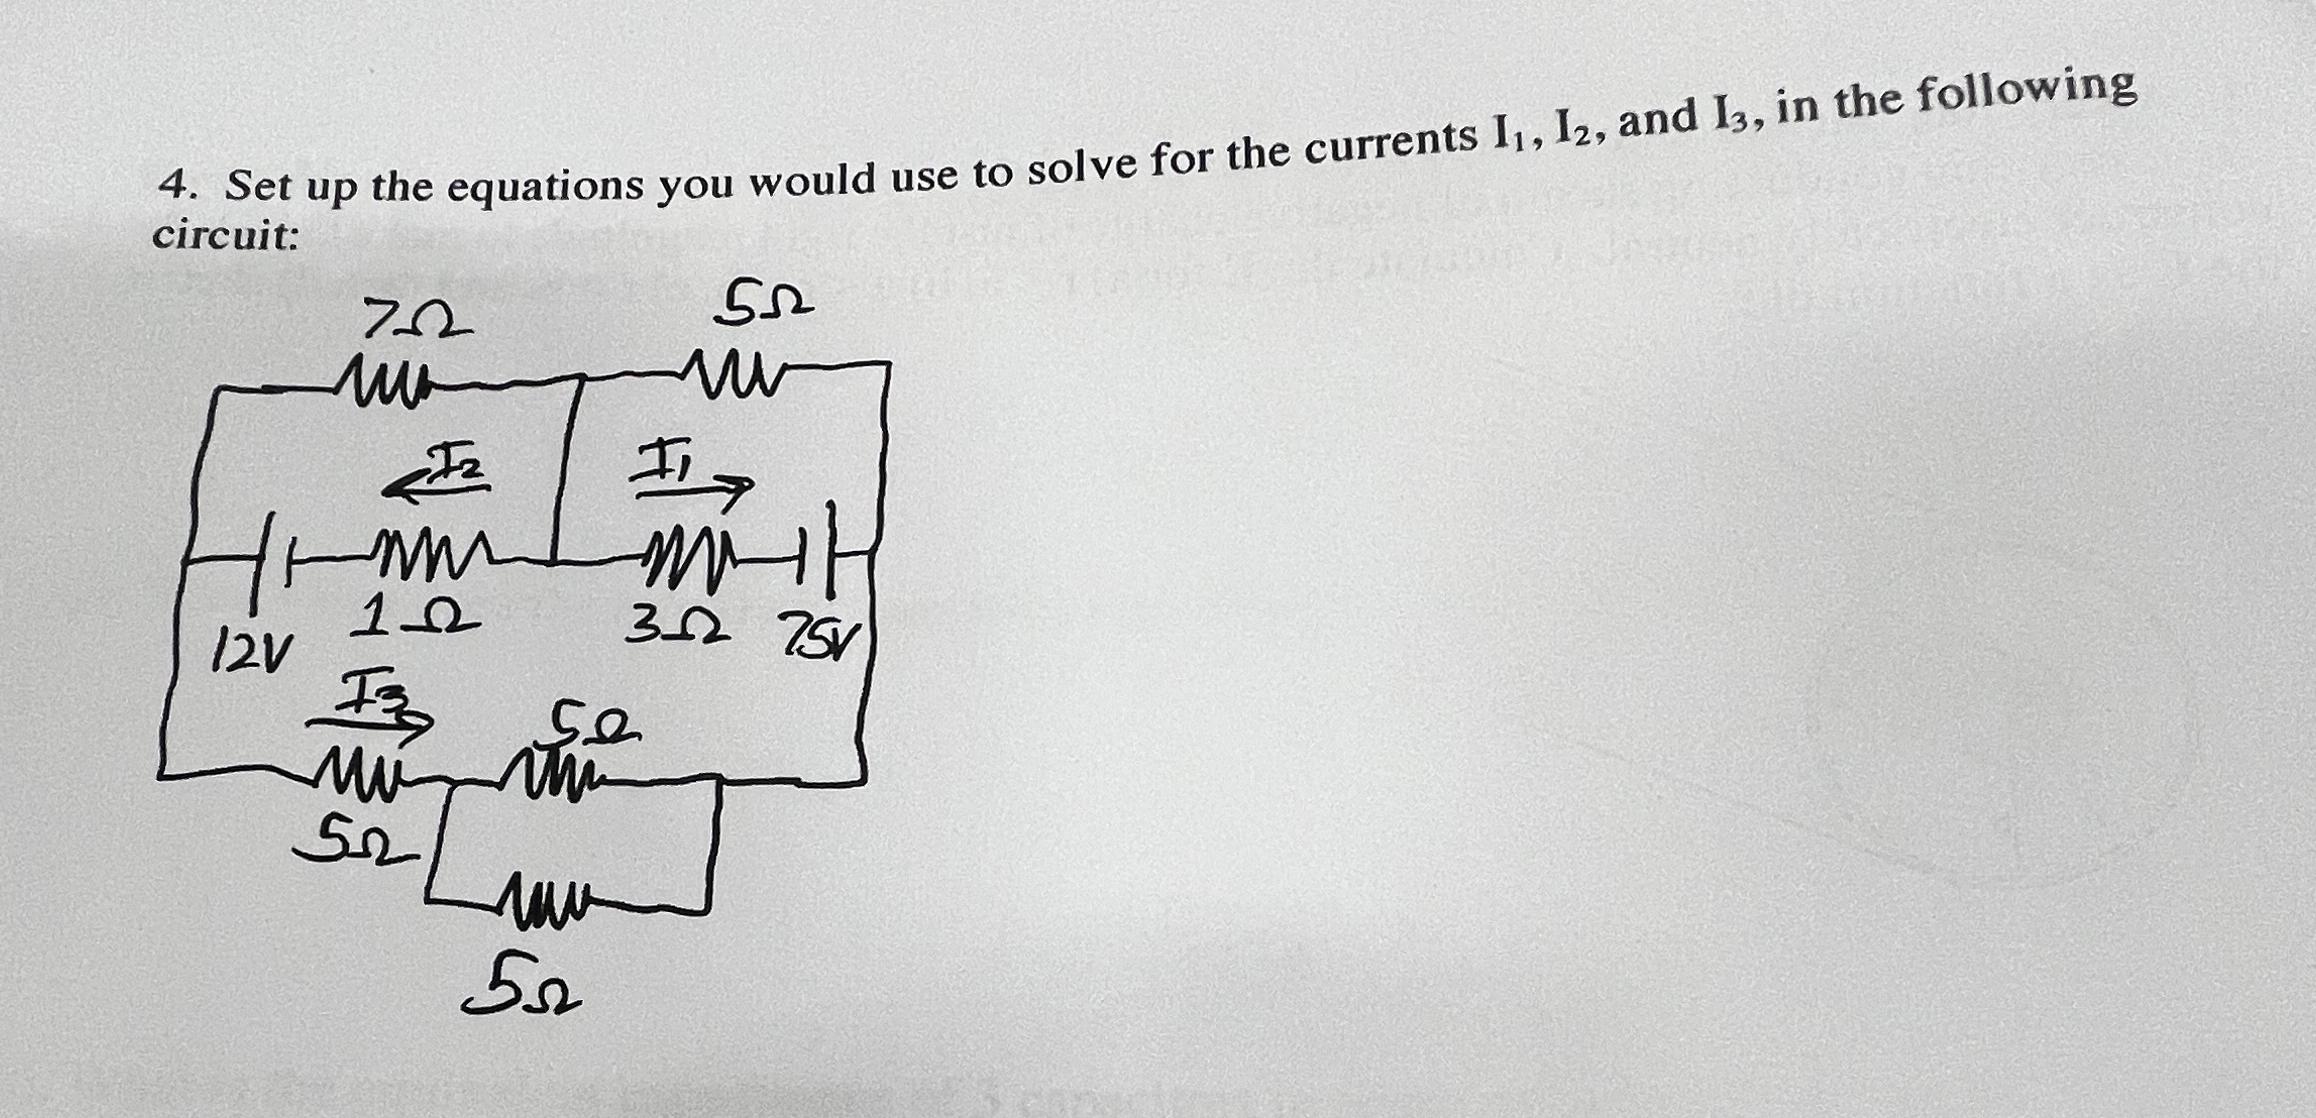 4. Set up the equations you would use to solve for the currents I₁, I₂, and I₃, in the following
circuit:
7Ω 5Ω
I₂ I₁
1Ω 3Ω 75V
12V
I₃ 5Ω
5Ω
5Ω